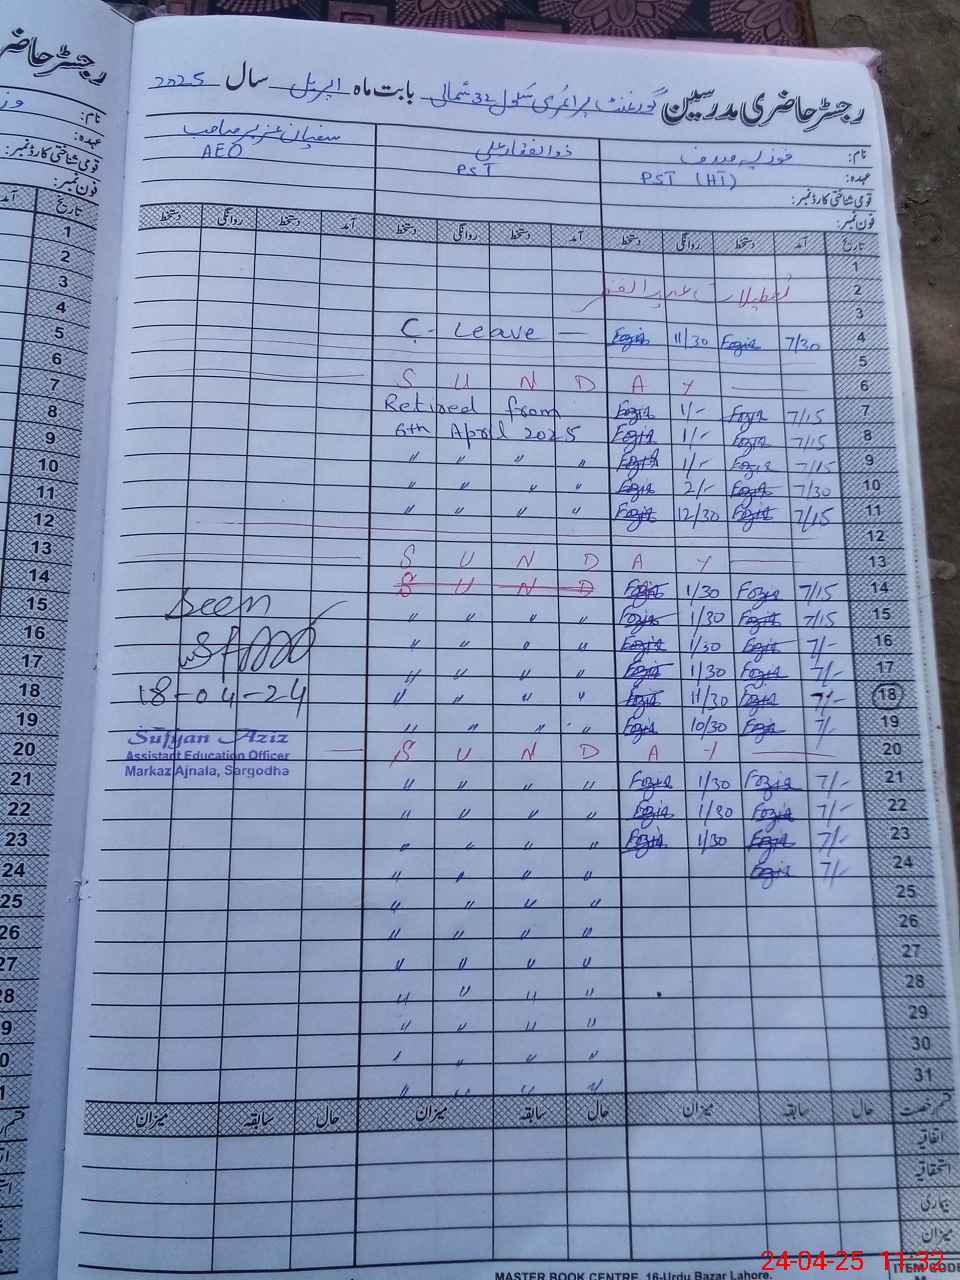 رجسٹر حاضری مدرسین گورنمنٹ پرائمری سکول 32 شمالی بابت ماہ اپریل سال 2025
نام: فوزیہ ذوالفقار علی سفیان عزیز صاحب
عہدہ: PST (HT) PST AEO
قومی شناختی کارڈ نمبر:
فون نمبر:
تاریخ آمد دستخط روانگی دستخط آمد دستخط روانگی دستخط آمد دستخط روانگی دستخط
1
2 تعطیلات عید الفطر
3
C - Leave — Fozia 11/30 Fozia 7/30 4
5
S U N D A Y 6
Retired from Fozia 1/- Fozia 7/15 7
6th April 2025 Fozia 1/- Fozia 7/15 8
" " " " Fozia 1/- Fozia 7/15 9
" " " " Fozia 2/- Fozia 7/30 10
" " " " Fozia 12/30 Fozia 7/15 11
12
S U N D A Y 13
S U N D Fozia 1/30 Fozia 7/15 14
" " " " Fozia 1/30 Fozia 7/15 15
" " " " Fozia 1/30 Fozia 7/- 16
" " " " Fozia 1/30 Fozia 7/- 17
" " " " Fozia 11/30 Fozia 7/- 18
" " " " Fozia 10/30 Fozia 7/- 19
S U N D A Y 20
" " " " Fozia 1/30 Fozia 7/- 21
" " " " Fozia 1/30 Fozia 7/- 22
" " " " Fozia 1/30 Fozia 7/- 23
" " " " Fozia 7/- 24
" " " " 25
" " " " 26
" " " " 27
" " " " 28
" " " " 29
" " " " 30
" " " " 31
Seen
18-04-24
Sufyan Aziz
Assistant Education Officer
Markaz Ajnala, Sargodha
قسم رخصت حال سابقہ میزان حال سابقہ میزان حال سابقہ میزان
اتفاقیہ
استحقاقیہ
بیماری
میزان
MASTER BOOK CENTRE, 16-Urdu Bazar Lahore.
ITEM CODE
24-04-25 11:32